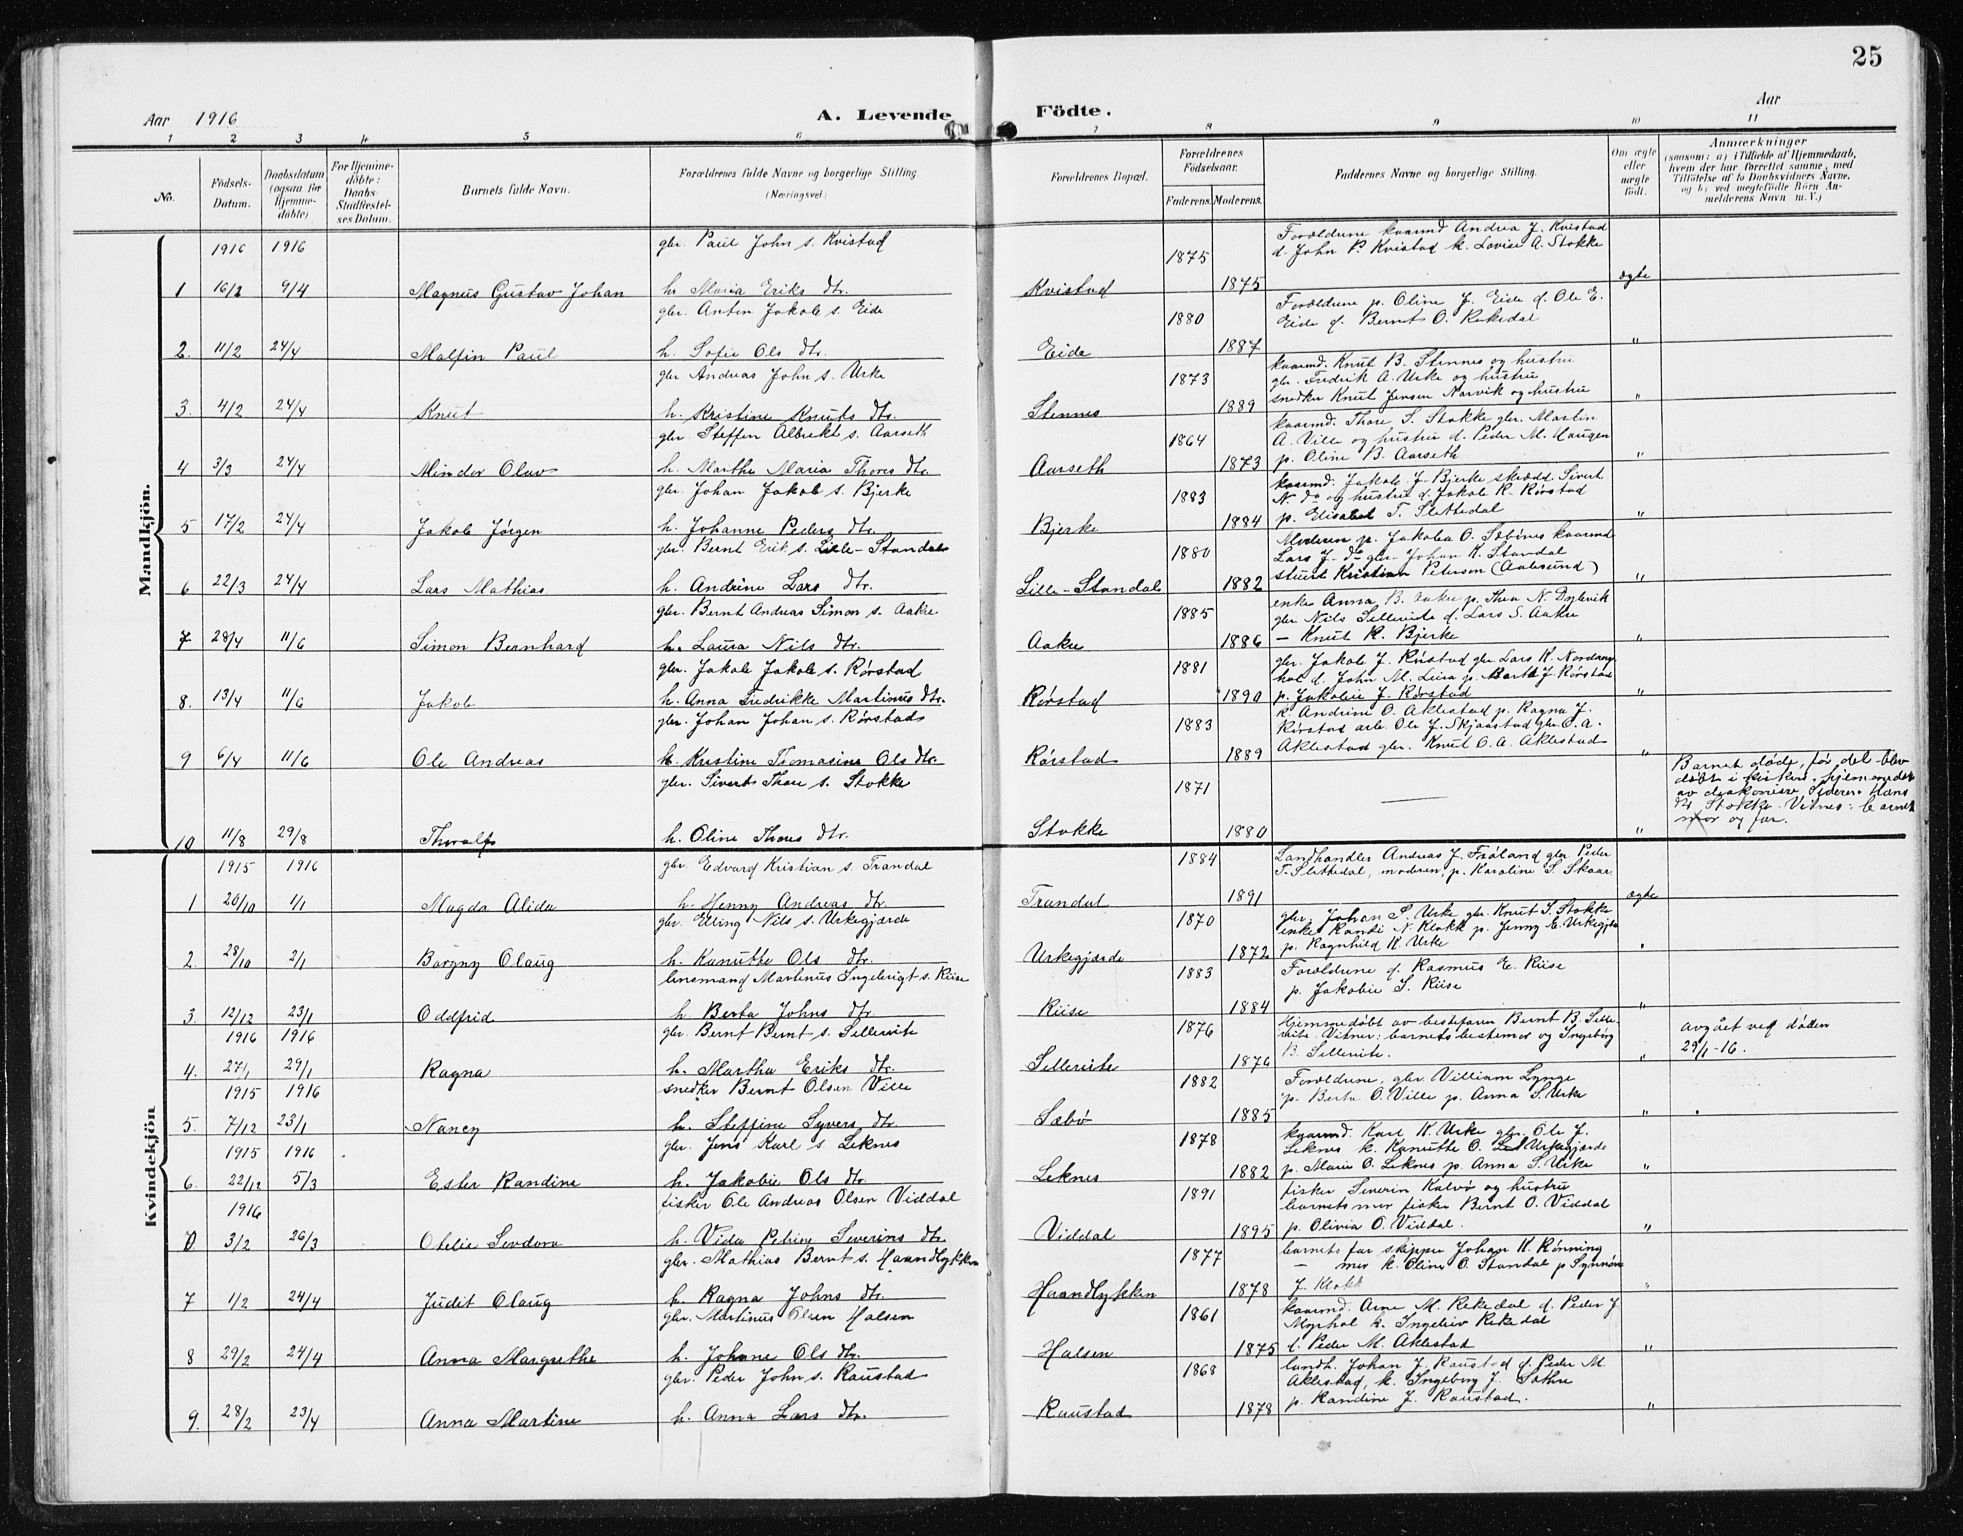 25
Aar 1916
A. Levende
Födte.
Aar
1 2 3 4 5 6 7 8 9 10 11
No.
Födsels-Datum.
Daabsdatum (ogsaa for Hjemme-döbte)
For Hjemme-döbte: Daabs-Stadfæstel-ses Datum.
Barnets fulde Navn.
Forældrenes fulde Navne og borgerlige Stilling (Næringsvei.)
Forældrenes Bopæl.
Forældrenes Födselsaar.
Faderens. Moderens.
Faddernes Navne og borgerlige Stilling.
Om ægte eller uægte födt.
Anmærkninger
(saasom: a) i Tilfælde af Hjemmedaab, hvem der har forrettet samme, med Tilföielse af to Daabsvidners Navne, og b) ved uægtefödte Börn An-melderens Navn m. V.)
Mandkjön.
1916 1916 gbr. Paul John s. Kvistad 1875 Forældrene kaarmd Andrea J. Kvistad
d. John P. Kvistad k. Lovise A. Stokke
1 16/2 9/4 Magnus Gustav Johan h. Maria Eriks dtr. Kvistad 1875 ægte
gbr. Anton Jakob s. Eide 1880 Forældrene p. Oline J. Eide d. Ole E.
Eide d. Bernt O. Rekedal
2. 11/2 24/4 Malfin Paul h. Sofie Ols dtr. Eide 1887 "
gbr Andreas John s. Urke 1873 kaarmd. Knut B. Stennes og hustru
gbr. Fredrik A. Urke og hustru
3. 4/2 24/4 Knut h. Kristine Knuts dtr. Stennes 1889 snedker Knut Jensen Narvik og hustru "
gbr. Steffen Albrikt s. Aarseth 1864 kaarmd. Thore S. Stokke gbr. Martin
A. Ville og hustru d. Peder M. Haugen
4 3/3 24/4 Mindor Olav h. Marthe Maria Thores dtr. Aarseth 1873 p. Oline B. Aarseth "
gbr. Johan Jakob s. Bjerke 1883 kaarmd. Jakob J. Bjerke skrædd. Sivert
N. do og hustru d. Jakob K. Rørstad
5 17/2 24/4 Jakob Jørgen h. Johanne Peders dtr. Bjerke 1884 p. Elisabet T. Slettedal "
gbr. Bernt Erik s. Lille-Standal 1880 Moderen p. Jakobea O. Sæbönes kaarmd
Lars J. do gbr. Johan K. Standal
6 22/3 24/4 Lars Mathias h. Andrine Lars dtr. Lille-Standal 1882 stuert Kristian Peterson (Aalesund) "
gbr. Bernt Andreas Simon s. Aakre 1885 enke Anna B. Aakre p. Thea N.
gbr Nils Sellereite d. Lars S. Aakre
7 28/4 11/6 Simon Bernhard h. Laura Nils dtr. Aakre 1886 – Knut K. Bjerke "
gbr. Jakob Jakob s. Rørstad 1881 gbr. Jakob J. Rørstad gbr Lars K.
d. John M. Leira p. Berthe J. Rørstad
8. 13/4 11/6 Jakob h. Anna Fredrikke Martinus dtr. Rørstad 1890 p. Jakobie J. Rørstad "
gbr. Johan Johan s. Rørstad 1883 k. Andrine O. Aklestad p. Ragna J.
Rørstad arb. Ole J. Skjaastad gbr. O. A.
9 6/4 11/6 Ole Andreas h. Kristine Thomasine Ols dtr. Rørstad 1889 Aklestad gbr. Knut O. A. Aklestad "
gbr. Siverts Thore s. Stokke 1871 — Barnet døde, før det blev
døbt i kirken. hjemmedøbt
av diakonisse Siveren Hans
dtr. Stokke. Vitnes: barnets
10 11/8 29/8 Thoralf h. Oline Thores dtr. Stokke 1880 " mor og far.
Kvindekjön
1915 1916 gbr. Edvard Kristian s. Trandal 1884 Landhandler Andreas J. Frøland gbr Peder
T. Slettedal, moderen, p. Karoline S. Skaar.
1 20/10 1/1 Magda Alida h. Henny Andreas dtr. Trandal 1891 ægte
gbr. Elling Nils s. Urkegjærde 1870 gbr. Johan S. Urke gbr. Knut S. Stokke
enke Randi N. Klokk p. Jenny E. Urkegjerde
2. 28/10 2/1 Borgny Olaug h. Kanutte Ols dtr. Urkegjærde 1872 p. Ragnhild K Urke
lensmand Martinus Ingebrigt s. Riise 1883 Forældrene d. Rasmus E. Riise
p. Jakobie S. Riise
3. 12/12 23/1 Oddfrid h. Berta Johns dtr. Riise 1884 "
1916 1916 gbr. Bernt Bernt s. Sellereite 1876 hjemmedøbt av bestefaren Bernt B. Selle-
reite. Vitner: barnets bestemor og Ingeborg avgået ved døden
4. 27/1 29/1 Ragna h. Martha Eriks dtr. Sellereite 1876 B. Sellereite. " 29/1-16.
1915 1916 snedker Bernt Olsen Ville 1882 Forældrene, gbr. Villiam Lynge
5. 7/12 23/1 Nancy h. Steffine Syvers dtr. Sæbø 1885 p. Berta O. Ville p. Anna S. Urke "
1915 1916 gbr. Jens Karl s Leknes 1878 kaarmd. Karl K. Urke gbr. Ole J.
Leknes k. Kanutte O. Urkegjærde
6. 22/12 5/3 Ester Randine h. Jakobie Ols dtr. Leknes 1882 p. Marie O. Leknes p. Anna S. Urke "
1916 fisker Ole Andreas Olsen Viddal 1891 fisker Severin Kalvø og hustru
barnets mor fisker Bernt O. Viddal
3/2 26/3 Otelie Sevdora h. Vida Petrine Severins dtr. Viddal 1895 p. Olivia O. Viddal. "
gbr. Mathias Bernt s. Haandlykken 1877 barnets far skipper Johan K. Rønning
– mor k. Oline O. Standal p Synnøve
7 1/2 24/4 Judit Olaug h. Ragna Johns dtr. Haandlykken 1878 J. Klokk "
gbr. Martinus Olsen Halsen 1861 kaarmd. Arne M. Rekedal d. Peder J.
Myrhol k. Ingebor Rekedal
8 29/2 24/4 Anna Margrethe h. Johane Ols dtr. Halsen 1875 l. Peder M. Aklestad "
gbr. Peder John s. Raustad 1868 landh. Johan J. Raustad d. Peder M.
Aklestad, k. Ingeborg J. Sætre
9. 28/2 23/4 Anna Martine h. Anna Lars dtr. Raustad 1878 p. Randine J. Raustad. "